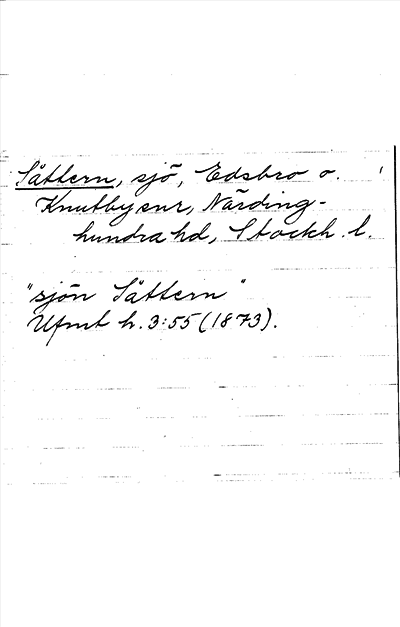 Såttern, sjö, Edsbro o.
Knutby snr, Närding-
hundra hd, Stockh. l.
"sjön Såttern"
Ufmt h. 3:55 (1873).